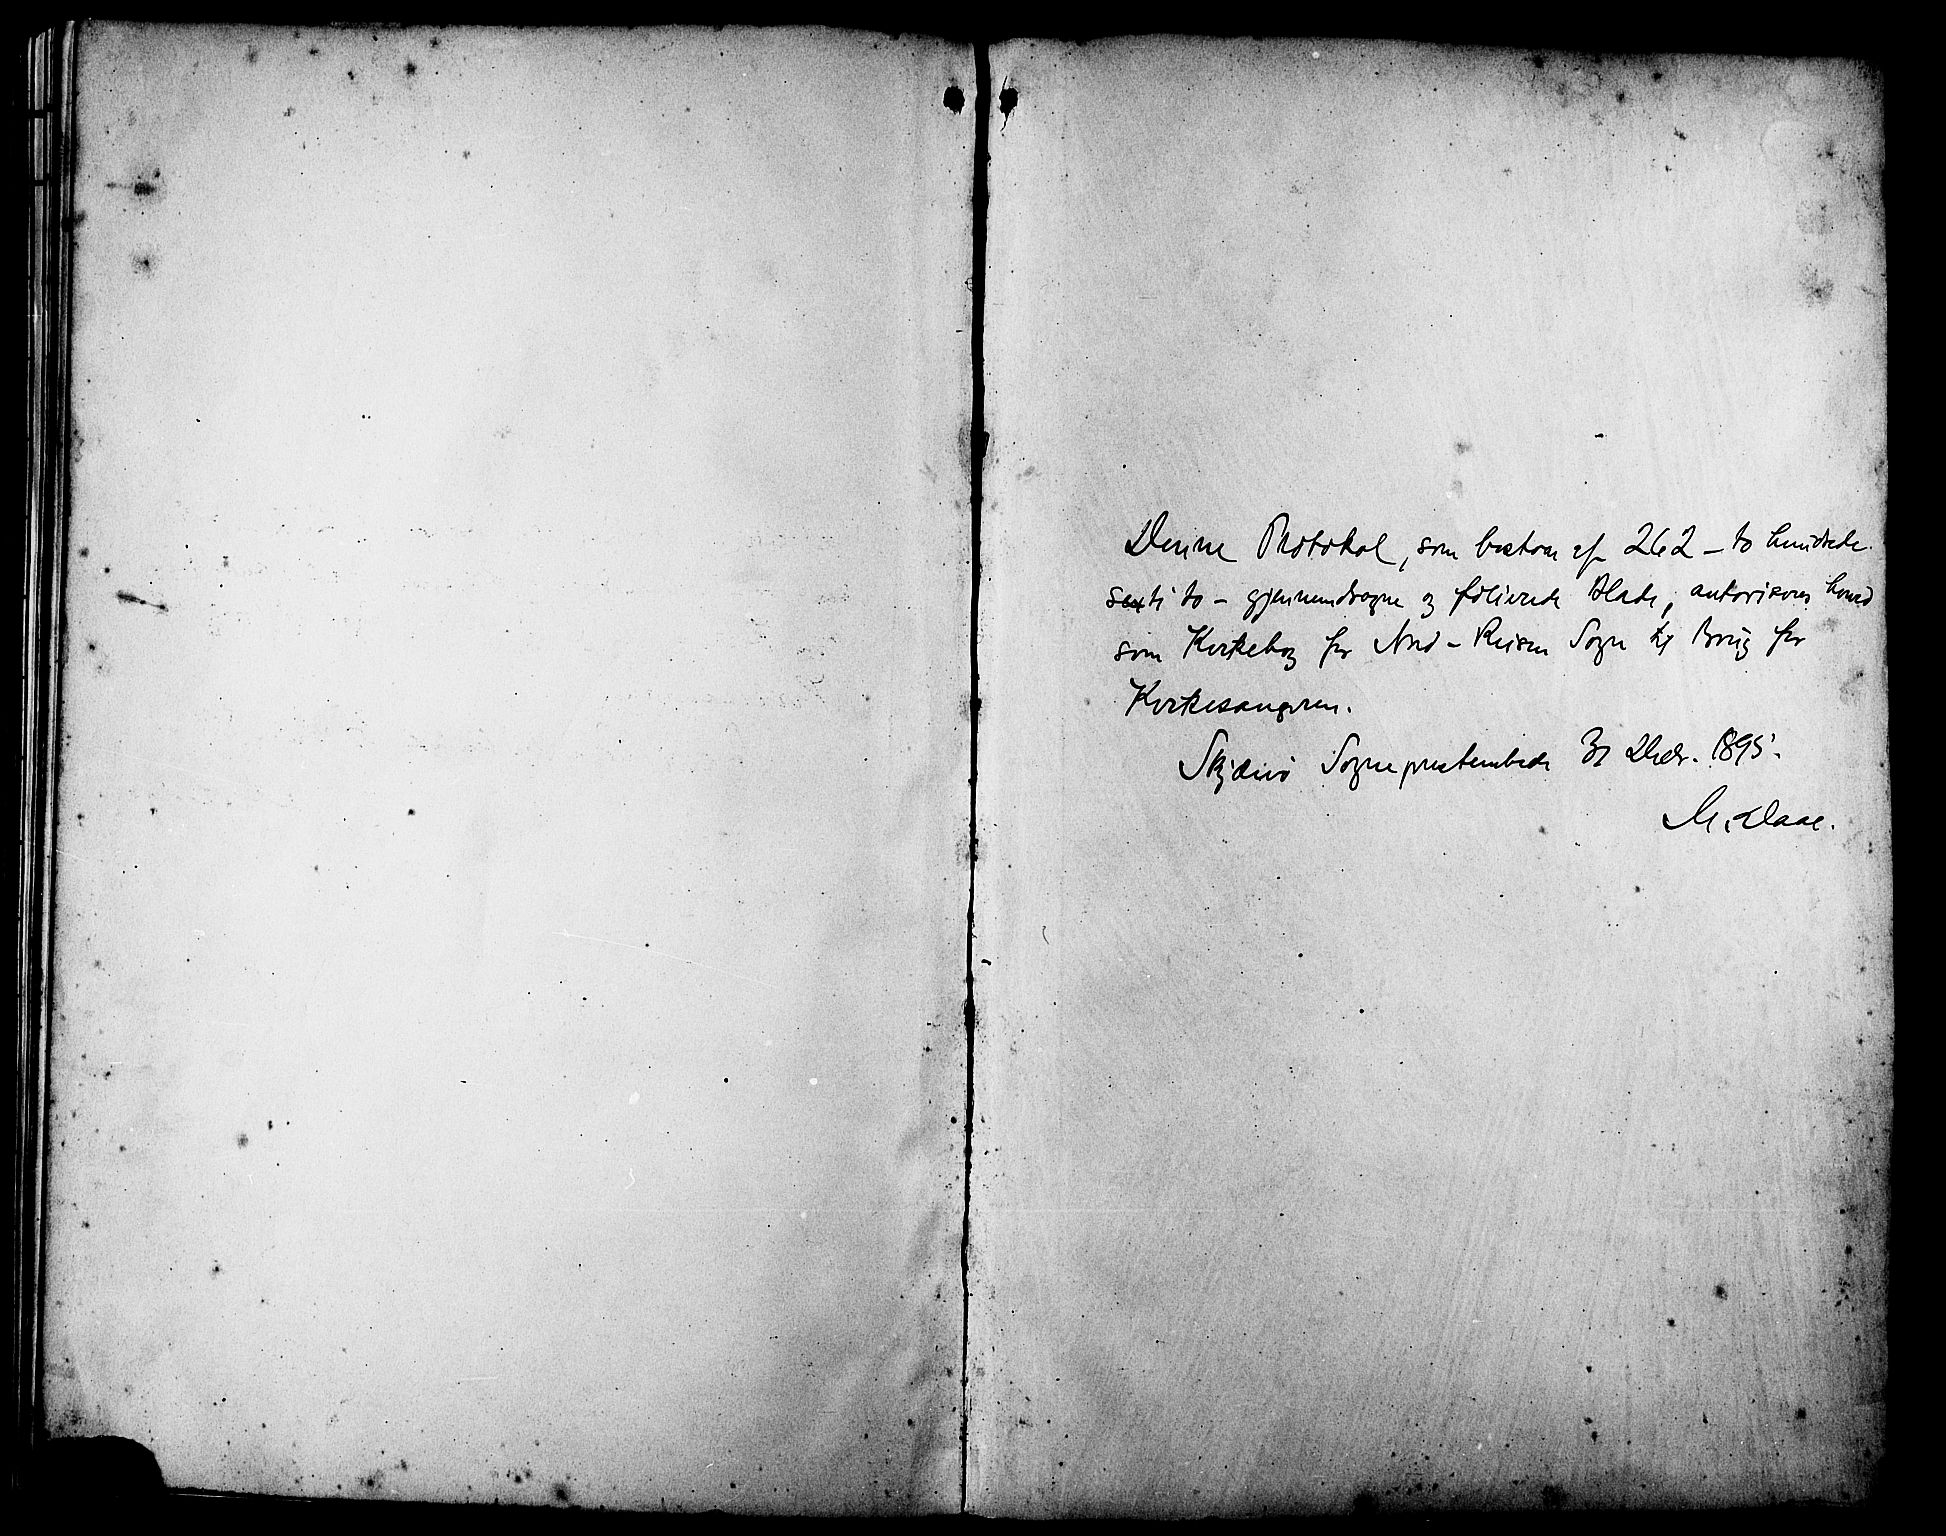 Denne Protokol, som bestaar af 262 – to hundrede
sexti to – gjennemdragne og folierede Blade, autoriseres herved
som Kirkebog for Nord-Reisen Sogn til Brug for
Kirkesangeren.
Skjærvø Sognepræstembede 31 Decbr. 1895.
M. Daae.